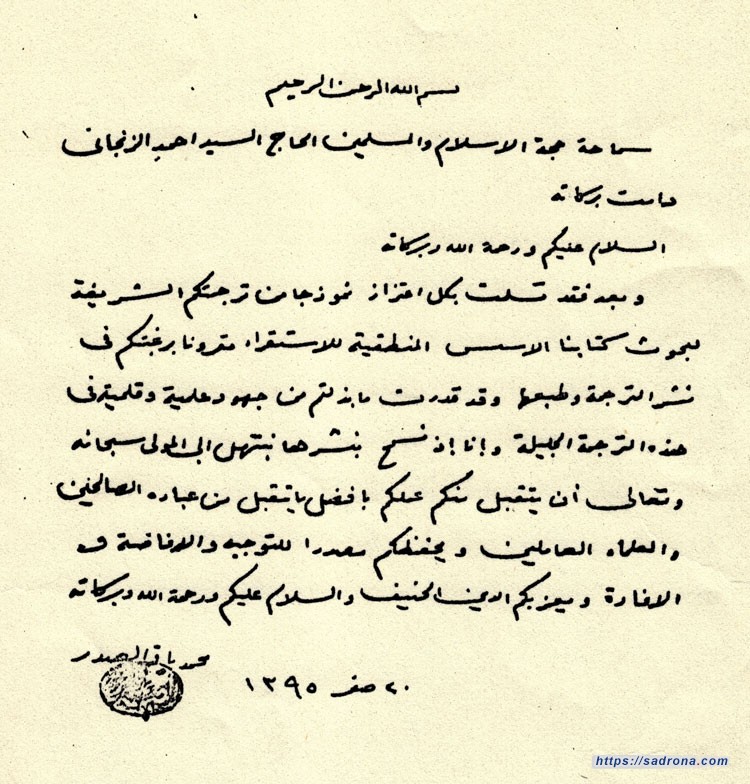 بسم الله الرحمن الرحيم
سماحة حجة الاسلام والمسلمين الحاج السيد احمد الزنجاني
دامت بركاته
السلام عليكم ورحمة الله وبركاته
وبعد فقد تسلمت بكل اعتزاز نموذجا من ترجمتكم الشريفة
لبحوث كتابنا الاسس المنطقية للاستقراء مقرونا برغبتكم في
نشر الترجمة وطبعها وقد قدرت ما بذلتم من جهود علمية وقلمية في
هذه الترجمة الجليلة وإنا إذ نسمح بنشرها نبتهل الى المولى سبحانه
وتعالى أن يتقبل منكم عملكم بافضل ما يتقبل من عباده الصالحين
والعلماء العاملين ويحفظكم مصدرا للتوجيه والافاضة و
الافادة ويعز بكم الدين الحنيف والسلام عليكم ورحمة الله وبركاته
محمد باقر الصدر
٢٠ صفر ١٣٩٥
https://sadrona.com